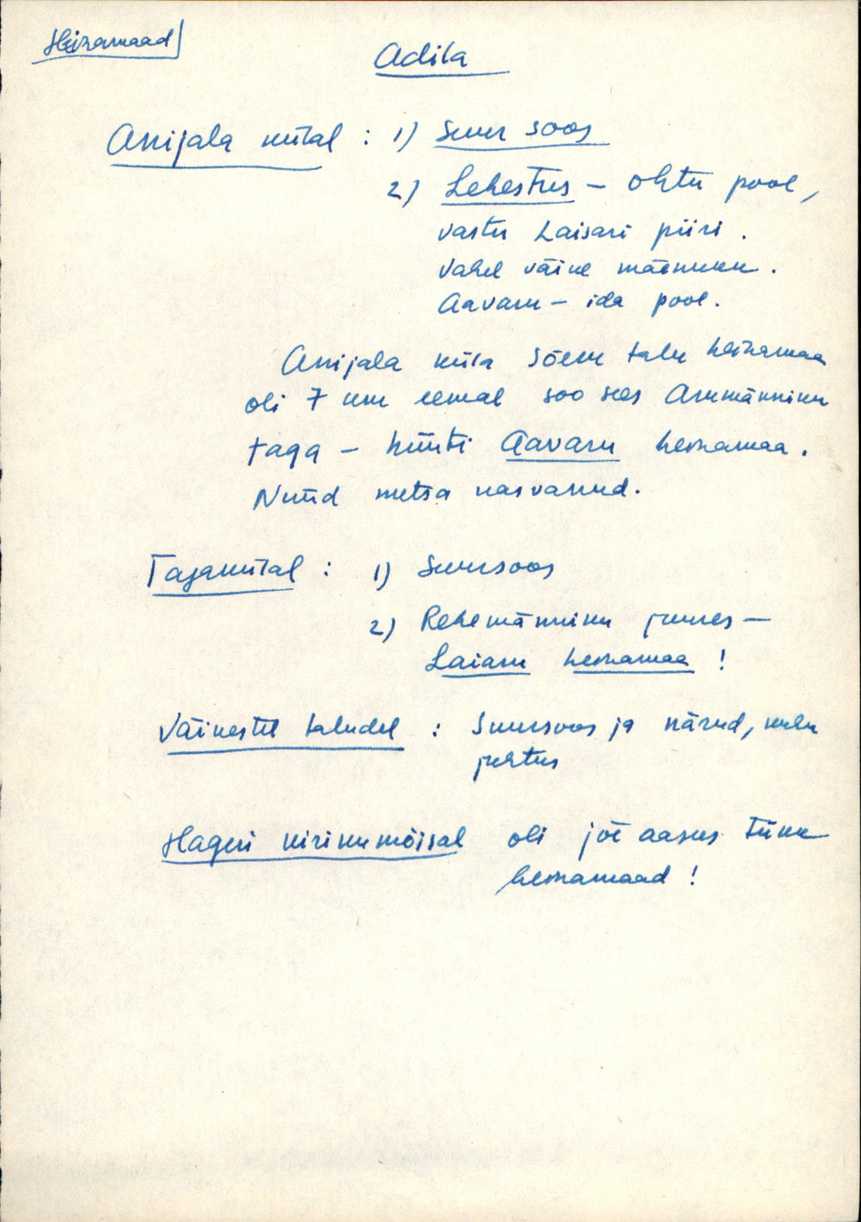 Heinamaad
Adila
Anijala külal : 1) Suur soos
2) Lehestus – õhtu pool,
vastu Laisari piiri.
Vahel väike männikü.
Aavaru – ida pool.
Anijala küla Sõeru talu heinamaa
oli 7 km eemal soo sees Arumänniku
taga – hüüti Aavaru heinamaa.
Nüüd metsa kasvanud.
Tagakülal : 1) Suursoos
2) Rehemänniku juures –
Laiaru heinamaa !
Väikestel taludel : Suursoos ja närud, kuhu
juhtus
Hageri kirikumõisal oli jõe aasus tükk
heinamaad !